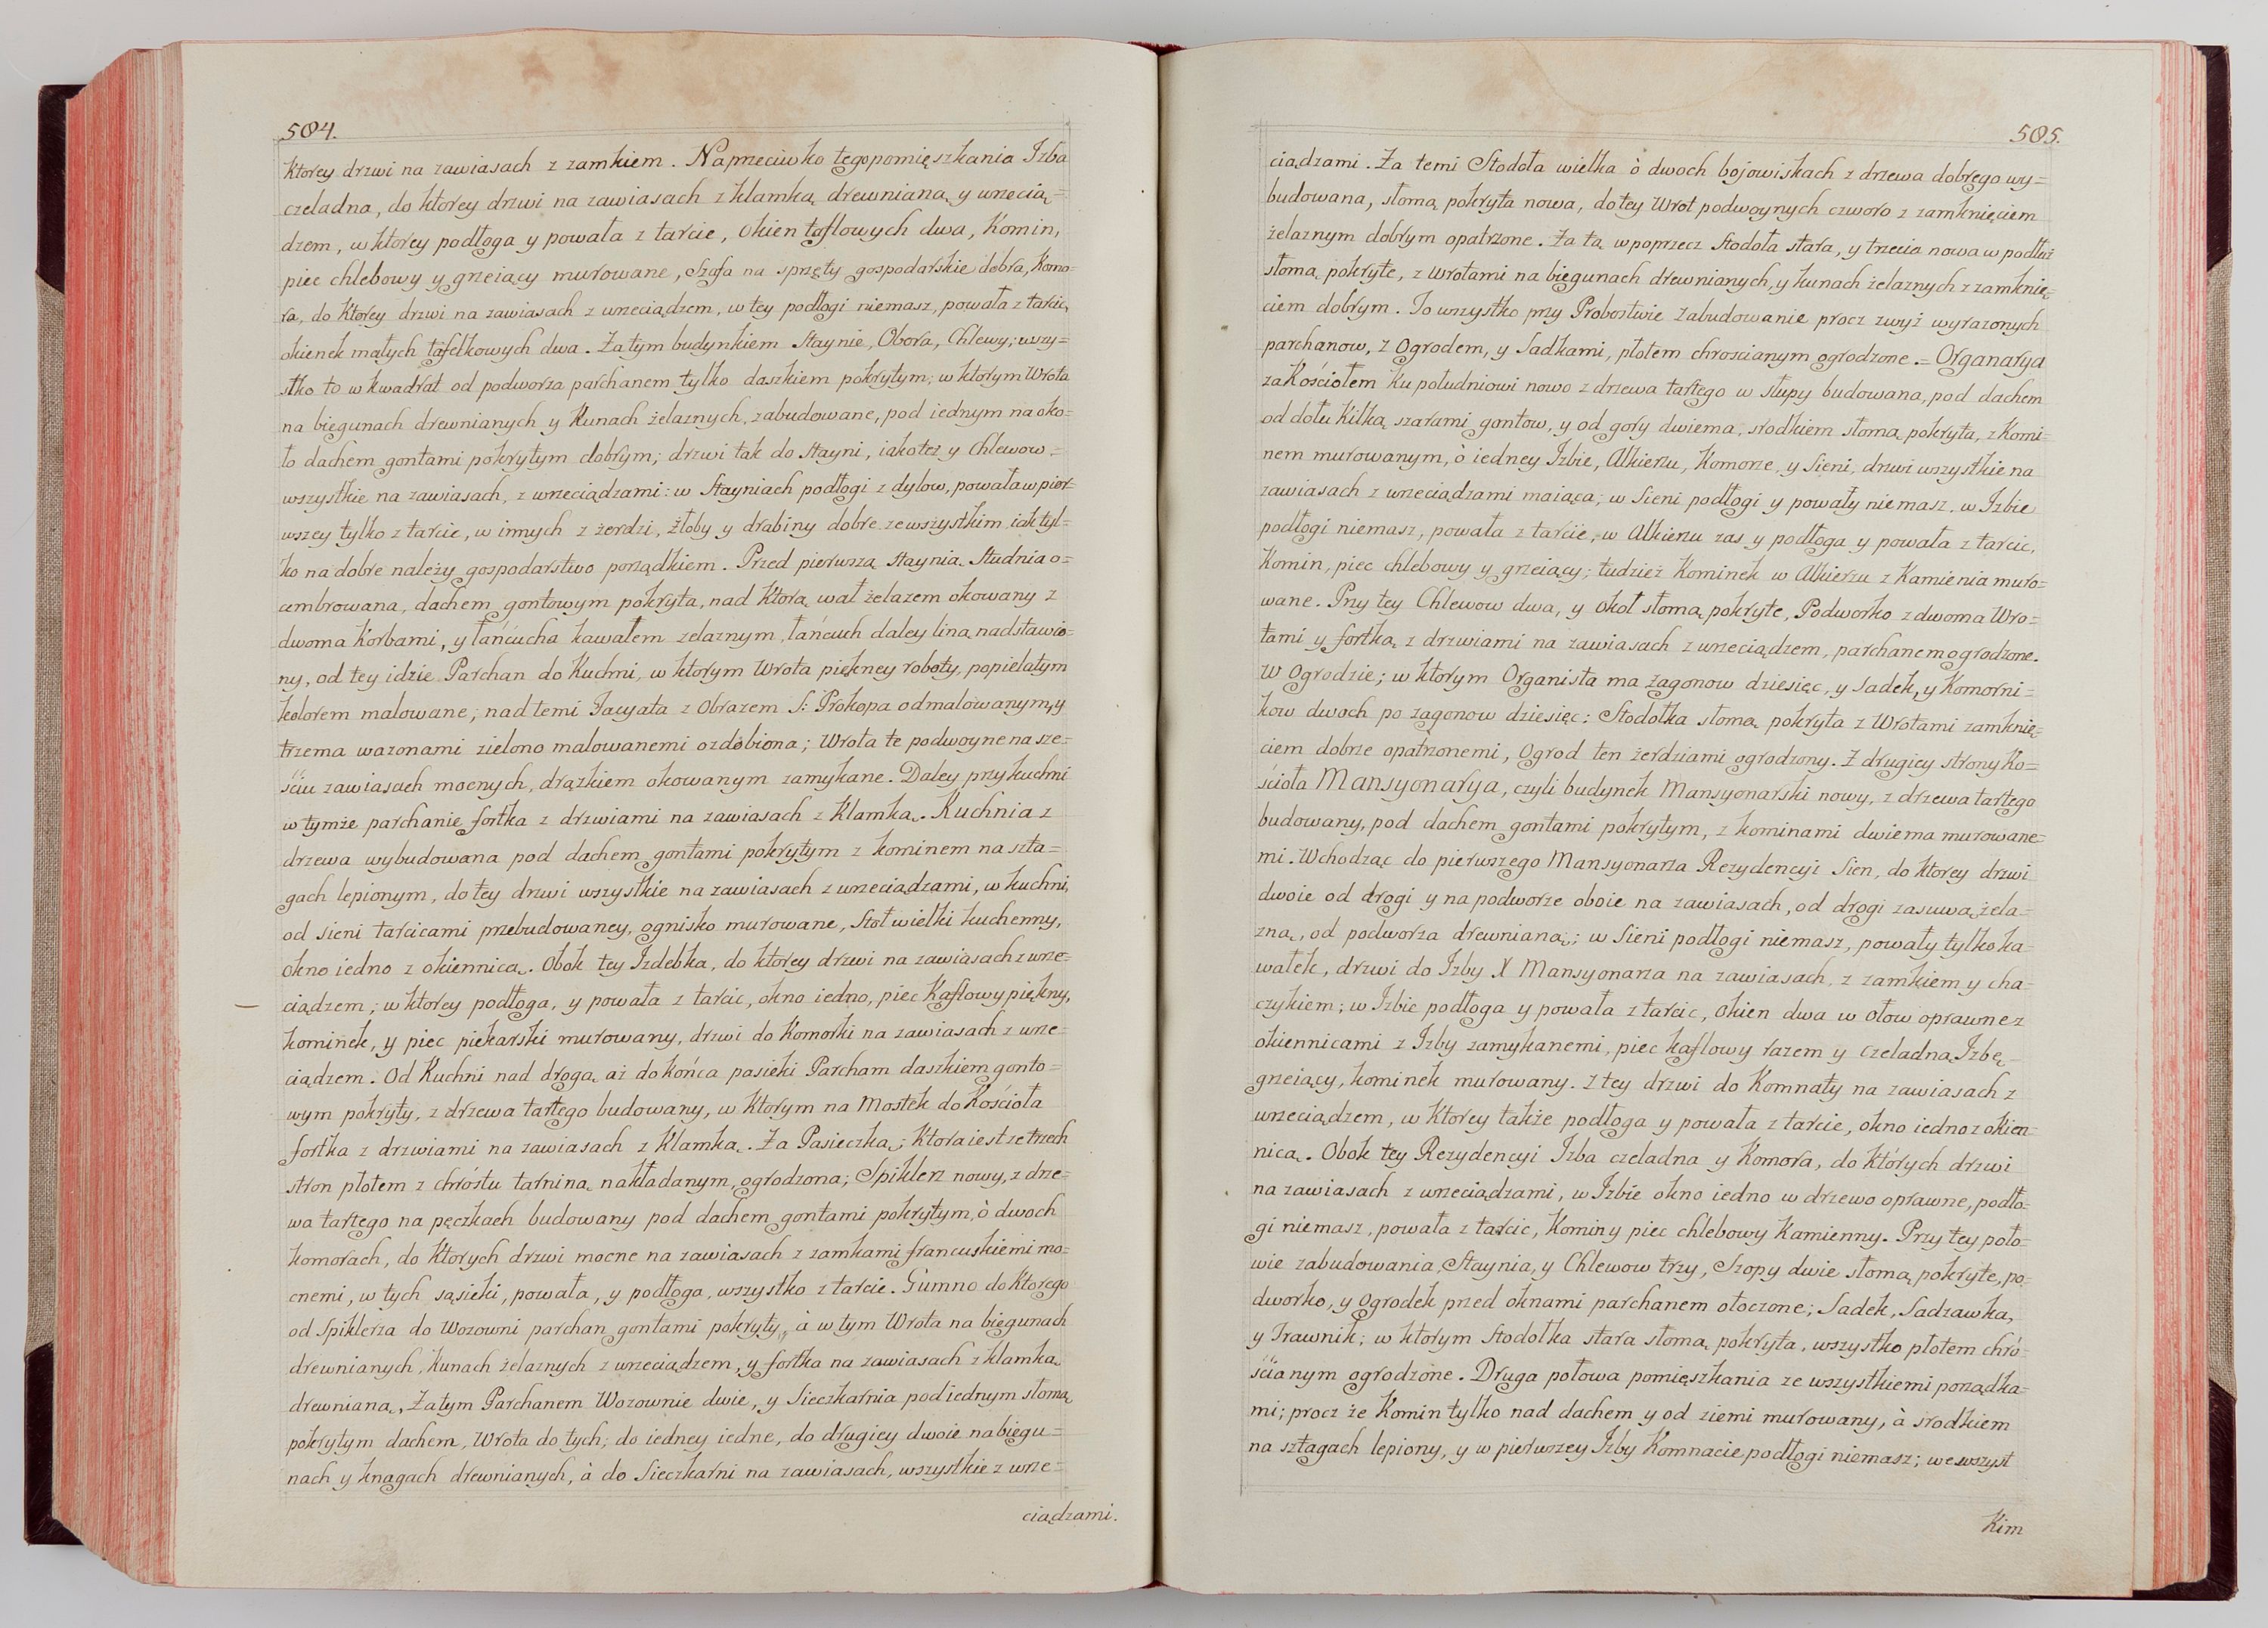 504.
ktorey drzwi na zawiasach z zamkiem. Naprzeciwko tego pomięszkania Izba
czeladna, do ktorey drzwi na zawiasach z klamką drewnianą y wrzecią=
dzem, w ktorey podłoga y powała z tarcic, Okien taflowych dwa, Komin,
piec chlebowy y grzeiący murowane, Szafa na sprzęty gospodarskie dobra, Komo=
ra, do ktorey drzwi na zawiasach z wrzeciądzem, w tey podłogi niemasz, powała z tarcic,
okienek małych tafelkowych dwa. Za tym budynkiem Staynie, Obora, Chlewy; wszy=
stko to w kwadrat od podworza parchanem tylko daszkiem pokrytym; w ktorym Wrota
na biegunach drewnianych y Kunach żelaznych, zabudowane, pod iednym na oko=
ło dachem gontami pokrytym dobrym; drzwi tak do Stayni, iako też y Chlewow=
wszystkie na zawiasach, z wrzeciądzami: w Stayniach podłogi z dylow, powała w pier=
wszey tylko z tarcic, w innych z żerdzi, żłoby y drabiny dobre ze wszystkim iak tyl=
ko na dobre należy gospodarstwo porządkiem. Przed pierwszą Staynią Studnia o=
cembrowana, dachem gontowym pokryta, nad ktorą wał żelazem okowany z
dwoma Korbami, y łańcucha kawałem zelaznym, łańcuch daley liną nadstawio=
ny, od tey idzie Parchan do Kuchni, w ktorym Wrota piękney roboty, popielatym
kolorem malowane; nad temi Facyata z Obrazem S: Prokopa odmalowanym, y
trzema wazonami zielono malowanemi ozdobiona; Wrota te podwoyne na sze=
ściu zawiasach mocnych, drążkiem okowanym zamykane. Daley przy kuchni
w tymże parchanie fortka z drzwiami na zawiasach z Klamką. Kuchnia z
drzewa wybudowana pod dachem gontami pokrytym z kominem na szta=
gach lepionym, do tey drzwi wszystkie na zawiasach z wrzeciądzami, w kuchni,
od sieni tarcicami przebudowaney, ognisko murowane, Stoł wielki kuchenny,
okno iedno z okiennicą. Obok tey Izdebka, do ktorey drzwi na zawiasach z wrze=
ciądzem; w ktorey podłoga, y powała z tarcic, okno iedno, piec Kaflowy piękny,
kominek, y piec piekarski murowany, drzwi do Komorki na zawiasach z wrze=
ciądzem. Od Kuchni nad drogą aż do końca pasieki Parcham daszkiem gonto=
wym pokryty, z drzewa tartego budowany, w ktorym na Mostek do Kościoła
fortka z drzwiami na zawiasach z Klamką. Za Pasieczką; Ktora iest ze trzech
stron płotem z chróstu tarniną nakładanym, ogrodzona; Spiklerz nowy, z drze=
wa tartego na pęczkach budowany pod dachem gontami pokrytym, ò dwoch
komorach, do ktorych drzwi mocne na zawiasach z zamkami francuskiemi mo=
cnemi, w tych sąsieki, powała, y podłoga, wszystko z tarcic. Gumno do Ktorego
od Spiklerza do Wozowni parchan gontami pokryty, à w tym Wrota na biegunach
drewnianych, Kunach żelaznych z wrzeciądzem, y fortka na zawiasach z klamką
drewnianą. Za tym Parchanem Wozownie dwie, y Sieczkarnia pod iednym słomą
pokrytym dachem, Wrota do tych; do iedney iedne, do drugiey dwoie na biegu=
nach y knagach drewnianych, à do Sieczkarni na zawiasach, wszystkie z wrze=
ciądzami.
505.
ciądzami. Za temi Stodoła wielka ò dwoch bojowiskach z drzewa dobrego wy=
budowana, słomą pokryta nowa, do tey Wrot podwoynych czworo z zamknięciem
żelaznym dobrym opatrzone. Za tą w poprzecz Stodoła stara, y trzecia nowa w podłuż
słomą pokryte, z Wrotami na biegunach drewnianych, y kunach żelaznych z zamknię=
ciem dobrym. To wszystko przy Probostwie zabudowanie procz zwyż wyrażonych
parchanow, z Ogrodem, y Sadkami, płotem chrościanym ogrodzone.= Organarya
za Kościołem ku południowi nowo z drzewa tartego w słupy budowana, pod dachem
od dołu Kilką szarami gontow, y od gory dwiema, srodkiem słomą pokryta, z Komi=
nem murowanym, ò iedney Izbie, Alkierzu, Komorze, y Sieni, drzwi wszystkie na
zawiasach z wrzeciądzami maiąca; w Sieni podłogi y powały niemasz. w Izbie
podłogi niemasz, powała z tarcic, w Alkierzu zas y podłoga y powała z tarcic,
Komin, piec chlebowy y grzeiący; tudzież Kominek w Alkierzu z Kamienia muro=
wane. Przy tey Chlewow dwa, y okoł słomą pokryte, Podworko z dwoma Wro=
tami y fortką z drzwiami na zawiasach z wrzeciądzem, parchanem ogrodzone.
W Ogrodzie; w ktorym Organista ma zagonow dziesięc, y Sadek, y Komorni=
kow dwoch po zagonow dziesięc: Stodołka słomą pokryta z Wrotami zamknię=
ciem dobrze opatrzonemi, Ogrod ten żerdziami ogrodzony. Z drugiey strony Ko=
ścioła Mansyonarya, czyli budynek Mansyonarski nowy, z drzewa tartego
budowany, pod dachem gontami pokrytym, z kominami dwiema murowane=
mi. Wchodząc do pierwszego Mansyonarza Rezydencyi Sien, do ktorey drzwi
dwoie od drogi y na podworze oboie na zawiasach, od drogi zasuwą żela=
zną, od podworza drewnianą; w Sieni podłogi niemasz, powały tylko ka=
wałek, drzwi do Izby X Mansyonarza na zawiasach, z zamkiem y cha=
czykiem; w Izbie podłoga y powała z tarcic, Okien dwa w ołow oprawne z
okiennicami z Izby zamykanemi, piec kaflowy razem y czeladną Izbę=
grzeiący, kominek murowany. Z tey drzwi do Komnaty na zawiasach z
wrzeciądzem, w Ktorey także podłoga y powała z tarcic, okno iedno z okien=
nicą. Obok tey Rezydencyi Izba czeladna y Komora, do których drzwi
na zawiasach z wrzeciądzami, w Izbie okno iedno w drzewo oprawne, podło=
gi niemasz, powała z tarcic, Komin y piec chlebowy Kamienny. Przy tey poło=
wie zabudowania, Staynia, y Chlewow trzy, Szopy dwie słomą pokryte, po=
dworko, y Ogrodek przed oknami parchanem otoczone; Sadek, Sadzawka,
y Trawnik; w ktorym Stodołka stara słomą pokryta, wszystko płotem chró=
ścianym ogrodzone. Druga połowa pomięszkania ze wszystkiemi porządka=
mi; procz że Komin tylko nad dachem y od ziemi murowany, à srodkiem
na sztagach lepiony, y w pierwszey Izby Komnacie podłogi niemasz; we wszyst
Kim